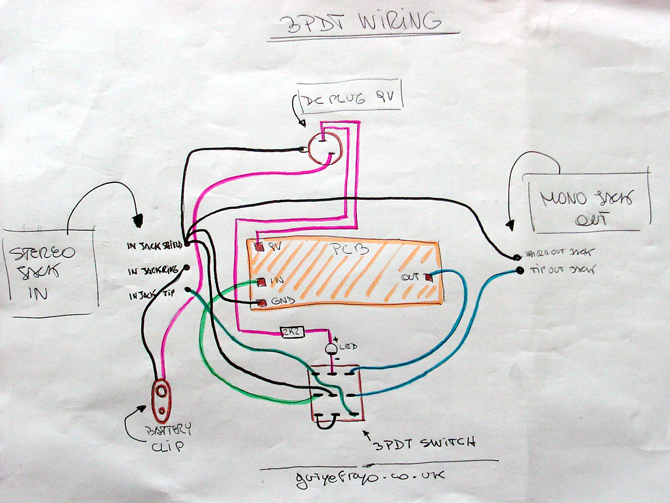 3PDT WIRING
DC PLUG 9V
STEREO
JACK
IN
MONO JACK
OUT
IN JACK SHIELD
IN JACK RING
IN JACK TIP
9V
PCB
IN
OUT
GND
SHIELD OUT JACK
TIP OUT JACK
2K2
+
LED
-
BATTERY
CLIP
3PDT SWITCH
guiyefrayo.co.uk